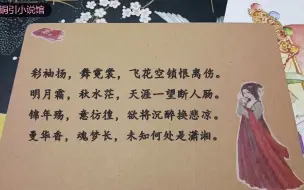 铜引小说馆
彩袖扬，舞霓裳，飞花空锁恨离伤。
明月霜，秋水茫，天涯一望断人肠。
锦年殇，意彷徨，欲将沉醉换悲凉。
曼华香，魂梦长，未知何处是潇湘。